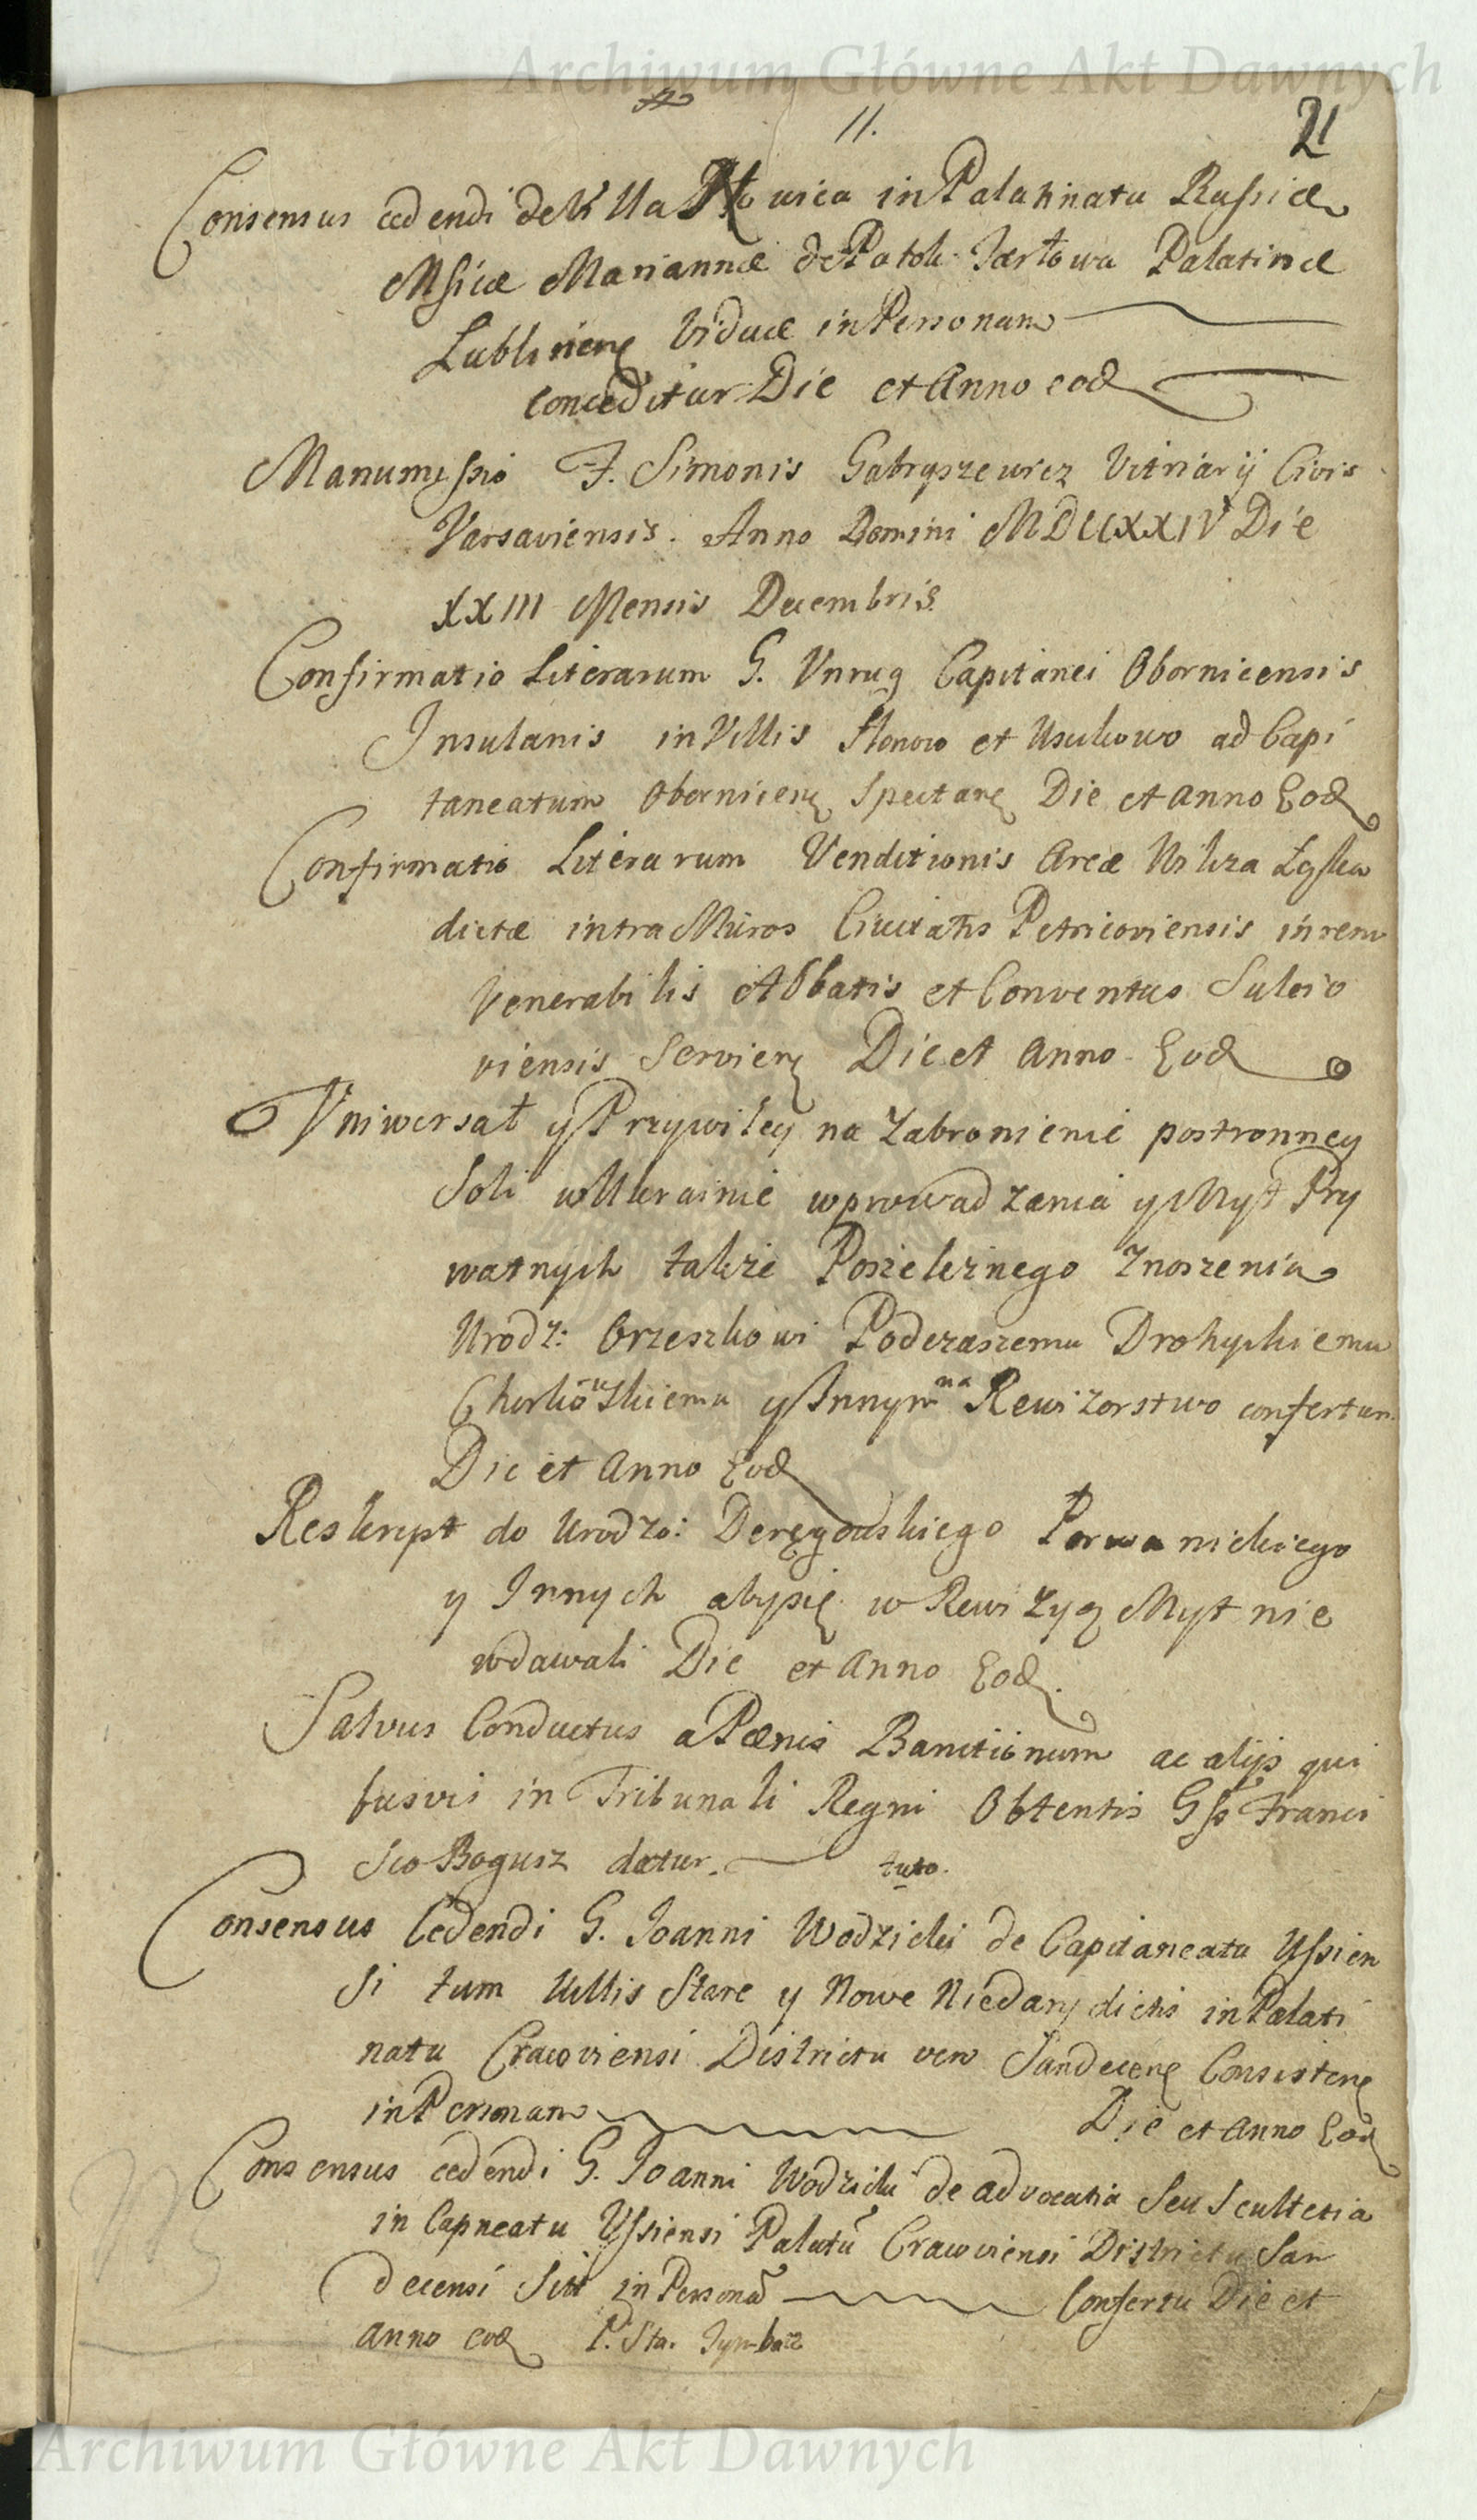 Archiwum Główne Akt Dawnych
11.
21
Consensus cedendi de Villa uica in Palatinatu Russiæ
Msicæ Mariannæ de Potok Tarłowa Palatinæ
Lublinens Viduæ in Personam
conceditur Die et Anno eod
Manumissio F. Simonis Gabryszewicz Vitriarij Civis
Varsaviensis. Anno Domini MDCCXXIV Die
XXIII Mensis Decembris
Confirmatio Literarum G. Vnrug Capitanei Obornicensis
Insulanis in Villis et ad Capi
taneatum Obornicens Spectans Die et Anno Eod
Confirmatio Literarum Venditionis Areæ
dictæ intra Muros Civitatis Petricoviensis in rem
Venerabilis Abbatis et Conventus Suleio
viensis Serviens Die et Anno Eod
Vniwersał y Przywiley na Zabronienie postronney
Soli w Ukrainie wprowadzania y Myt Pry
watnych także Poszelężnego Znoszenia
Urodz: Orzeszkowi Podczaszemu Drohyckiemu
y Innym na Rewizorstwo confertur
Die et Anno Eod
Reskrypt do Urodzo: Deręgowskiego
y Innych aby się w Rewizyą Myt nie
wdawali Die et Anno Eod.
Salvus Conductus a Pænis Bannitionum ac alijs qui
busvis in Tribunali Regni Obtentis Gso Franci
sco Bogusz datur. tuto.
Consensus Cedendi G. Joanni Wodzicki de Capitaneatu Ussien
si tum Villis Stare y Nowe Niedary dictis in Palati
natu Cracoviensi Districtu vero Sandecens Consistens
in Personam Die et Anno Eod
Consensus cedendi G. Joanni Wodzicki de advocatia Seu Scultetia
in Capneatu Ussiensi Palatũ Cracoviensi Districtu San
decensi Sitt in Personã Confertu Die et
anno eod P. Sta.
Archiwum Główne Akt Dawnych